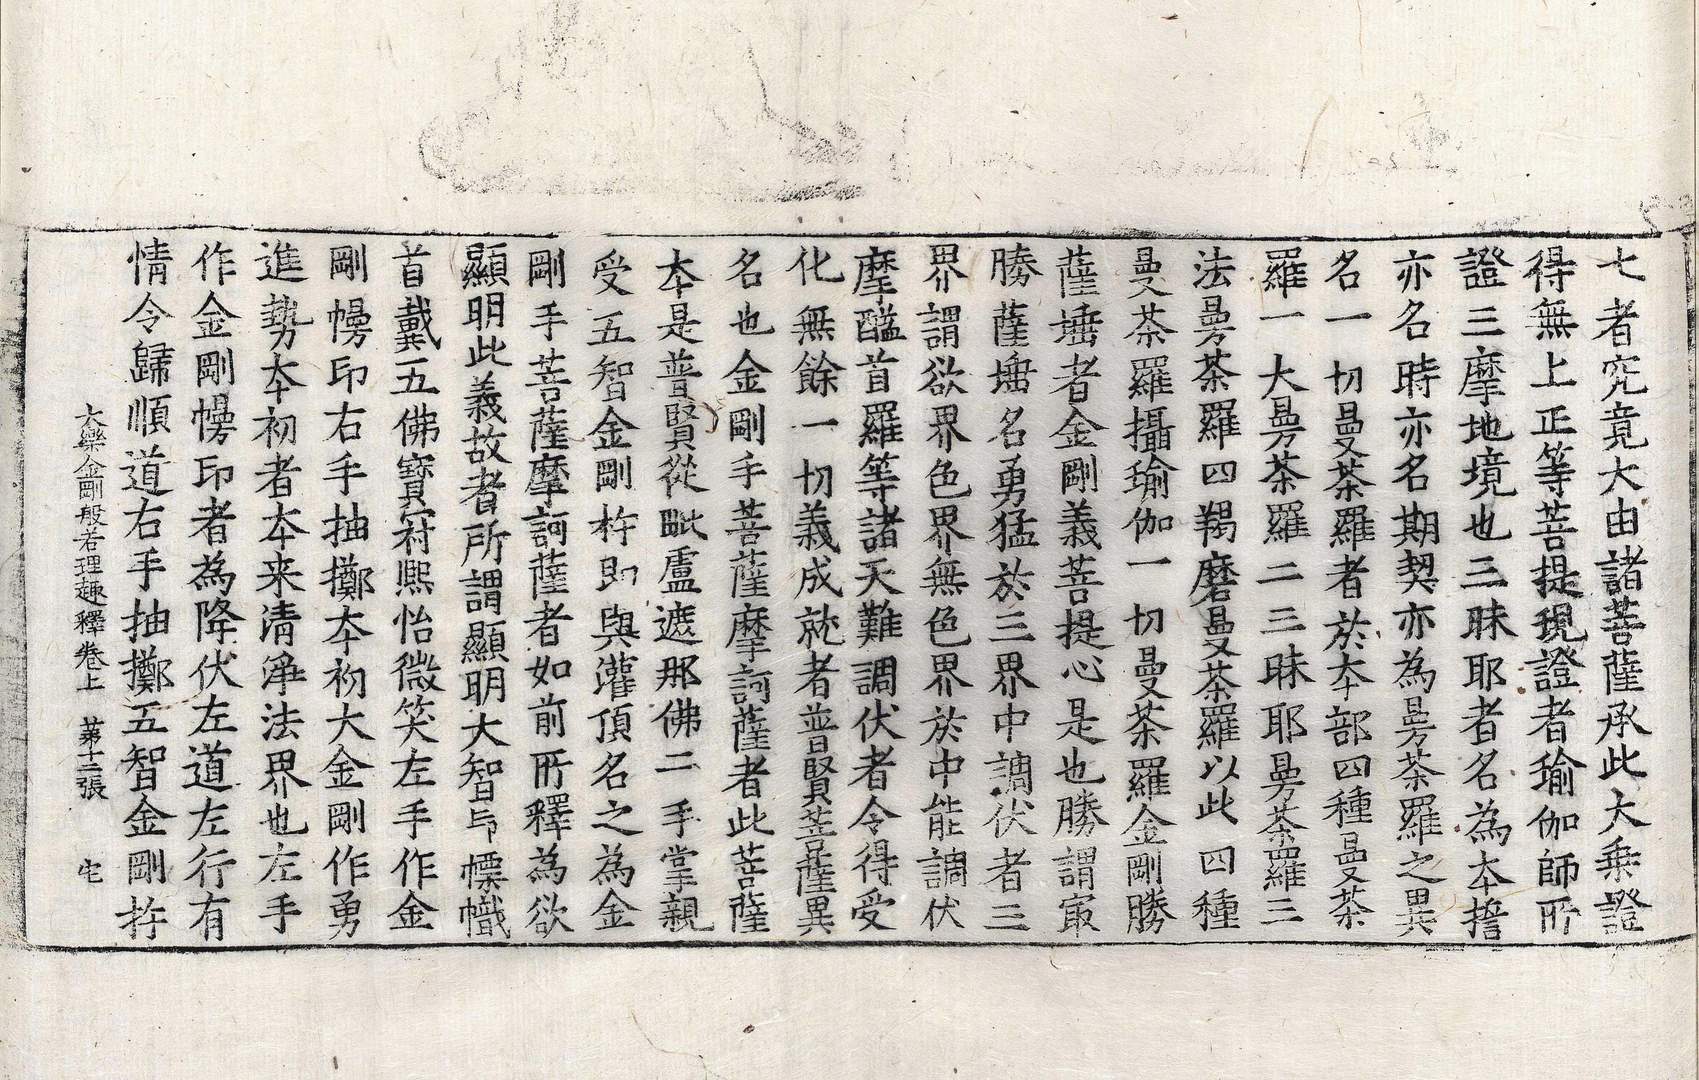 七者究竟大由諸菩薩承此大乗證
得無上正等菩提現證者瑜伽師所
證三摩地境也三昧耶者名為本誓
亦名時亦名期契亦為曼荼羅之異
名一切曼荼羅者於本部四種曼荼
羅一大曼荼羅二三昧耶曼荼羅三
法曼荼羅四羯磨曼荼羅以此四種
曼荼羅攝瑜伽一切曼荼羅金剛勝
薩埵者金剛義菩提心是也勝謂㝡
勝薩埵名勇猛於三界中調伏者三
界謂欲界色界無色界於中能調伏
摩醯首羅等諸天難調伏者令得受
化無餘一切義成就者普賢菩薩異
名也金剛手菩薩摩訶薩者此菩薩
本是普賢從毗盧遮那佛二手掌親
受五智金剛杵即與灌頂名之為金
剛手菩薩摩訶薩者如前所釋為欲
顯明此義故者所謂顯明大智印幖幟
首戴五佛寶冠熙怡微笑左手作金
剛慢印右手抽擲本初大金剛作勇
進勢本初者本来清淨法界也左手
作金剛慢印者為降伏左道左行有
情令歸順道右手抽擲五智金剛杵
大樂金剛般若理趣釋卷上 第十二張 宅